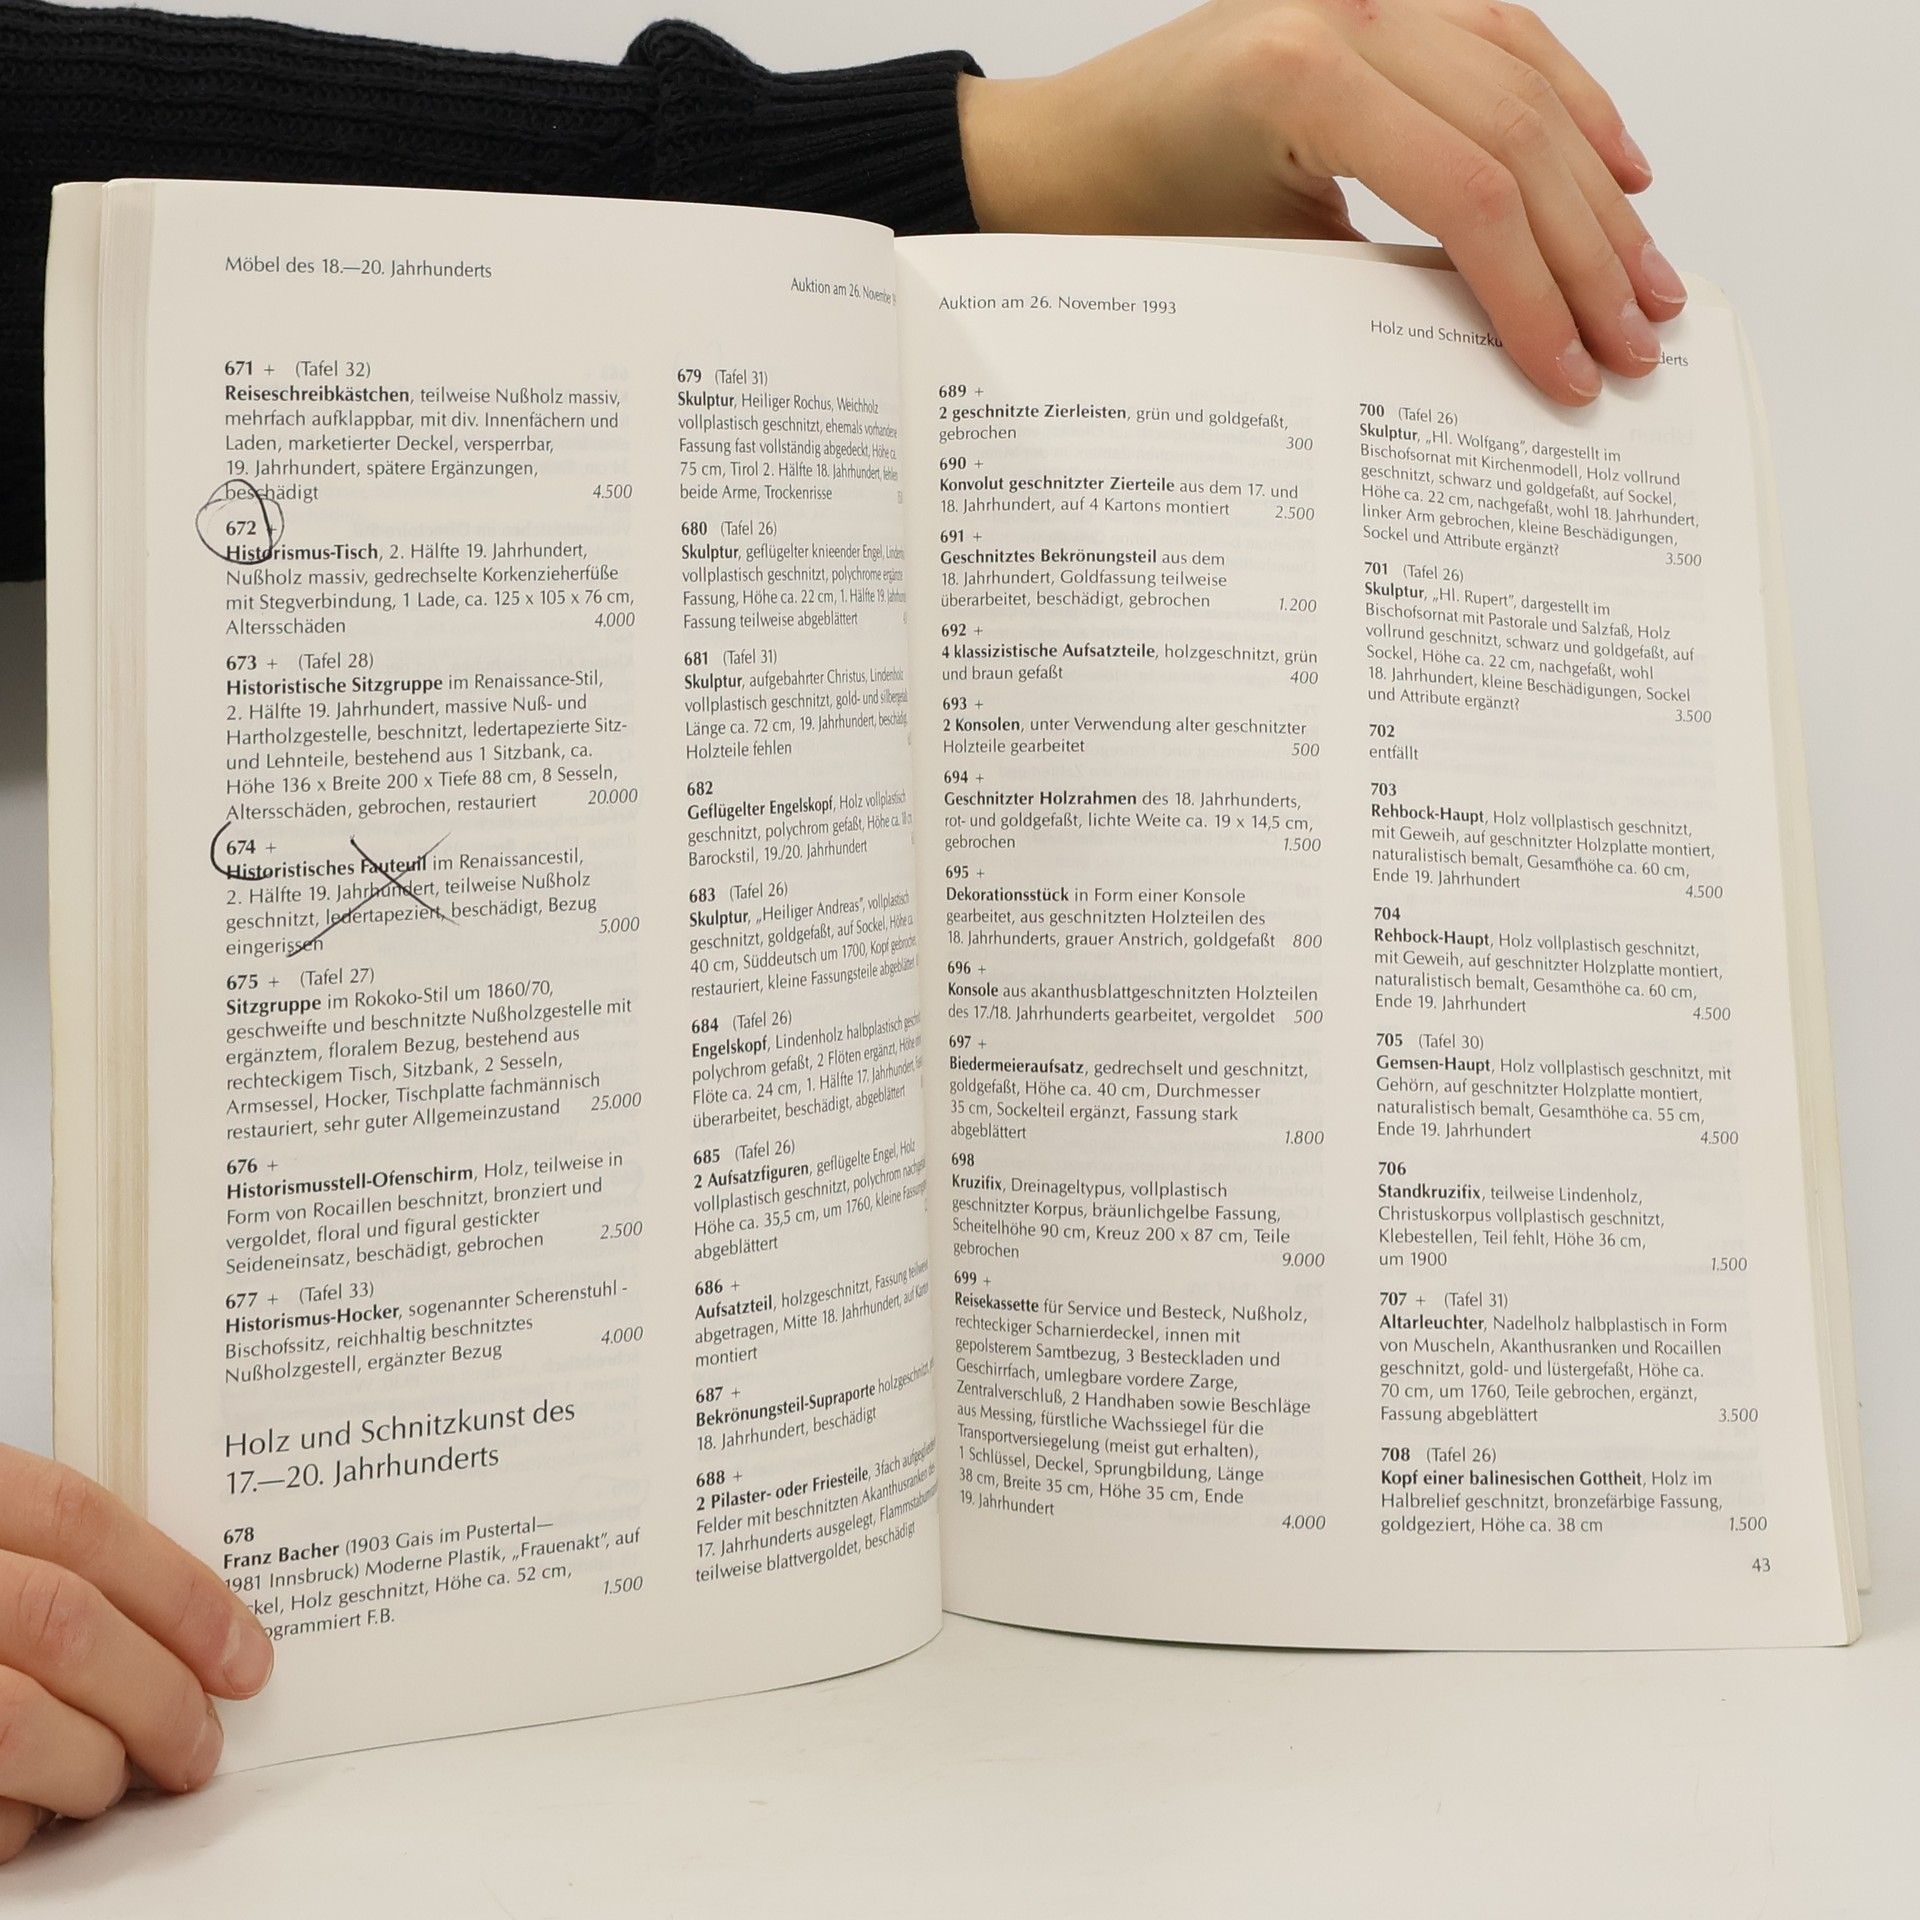 Möbel des 18.—20. Jahrhunderts
Auktion am 26. November
671 + (Tafel 32)
Reiseschreibkästchen, teilweise Nußholz massiv,
mehrfach aufklappbar, mit div. Innenfächern und
Laden, marketierter Deckel, versperrbar,
19. Jahrhundert, spätere Ergänzungen,
beschädigt 4.500
672 +
Historismus-Tisch, 2. Hälfte 19. Jahrhundert,
Nußholz massiv, gedrechselte Korkenzieherfüße
mit Stegverbindung, 1 Lade, ca. 125 x 105 x 76 cm,
Altersschäden 4.000
673 + (Tafel 28)
Historistische Sitzgruppe im Renaissance-Stil,
2. Hälfte 19. Jahrhundert, massive Nuß- und
Hartholzgestelle, beschnitzt, ledertapezierte Sitz-
und Lehnteile, bestehend aus 1 Sitzbank, ca.
Höhe 136 x Breite 200 x Tiefe 88 cm, 8 Sesseln,
Altersschäden, gebrochen, restauriert 20.000
674 +
Historistisches Fauteuil im Renaissancestil,
2. Hälfte 19. Jahrhundert, teilweise Nußholz
geschnitzt, ledertapeziert, beschädigt, Bezug
eingerissen 5.000
675 + (Tafel 27)
Sitzgruppe im Rokoko-Stil um 1860/70,
geschweifte und beschnitzte Nußholzgestelle mit
ergänztem, floralem Bezug, bestehend aus
rechteckigem Tisch, Sitzbank, 2 Sesseln,
Armsessel, Hocker, Tischplatte fachmännisch
restauriert, sehr guter Allgemeinzustand 25.000
676 +
Historismusstell-Ofenschirm, Holz, teilweise in
Form von Rocaillen beschnitzt, bronziert und
vergoldet, floral und figural gestickter
Seideneinsatz, beschädigt, gebrochen 2.500
677 + (Tafel 33)
Historismus-Hocker, sogenannter Scherenstuhl -
Bischofssitz, reichhaltig beschnitztes
Nußholzgestell, ergänzter Bezug 4.000
Holz und Schnitzkunst des
17.—20. Jahrhunderts
678
Franz Bacher (1903 Gais im Pustertal—
1981 Innsbruck) Moderne Plastik, „Frauenakt”, auf
kel, Holz geschnitzt, Höhe ca. 52 cm,
ogrammiert F.B. 1.500
679 (Tafel 31)
Skulptur, Heiliger Rochus, Weichholz
vollplastisch geschnitzt, ehemals vorhandene
Fassung fast vollständig abgedeckt, Höhe ca.
75 cm, Tirol 2. Hälfte 18. Jahrhundert, fehlen
beide Arme, Trockenrisse
680 (Tafel 26)
Skulptur, geflügelter knieender Engel,
vollplastisch geschnitzt, polychrome ergänzte
Fassung, Höhe ca. 22 cm, 1. Hälfte 19.
Fassung teilweise abgeblättert
681 (Tafel 31)
Skulptur, aufgebahrter Christus, Lindenholz
vollplastisch geschnitzt, gold- und
Länge ca. 72 cm, 19. Jahrhundert,
Holzteile fehlen
682
Geflügelter Engelskopf, Holz vollplastisch
geschnitzt, polychrom gefaßt, Höhe ca.
Barockstil, 19./20. Jahrhundert
683 (Tafel 26)
Skulptur, „Heiliger Andreas”, vollplastisch
geschnitzt, goldgefaßt, auf Sockel, Höhe ca.
40 cm, Süddeutsch um 1700, Kopf gebrochen,
restauriert, kleine Fassungsteile abgeblättert
684 (Tafel 26)
Engelskopf, Lindenholz halbplastisch
polychrom gefaßt, 2 Flöten ergänzt, Höhe
Flöte ca. 24 cm, 1. Hälfte 17. Jahrhundert,
überarbeitet, beschädigt, abgeblättert
685 (Tafel 26)
2 Aufsatzfiguren, geflügelte Engel, Holz
vollplastisch geschnitzt, polychrom
Höhe ca. 35,5 cm, um 1760, kleine
abgeblättert
686 +
Aufsatzteil, holzgeschnitzt, Fassung
abgetragen, Mitte 18. Jahrhundert, auf
montiert
687 +
Bekrönungsteil-Supraporte holzgeschnitzt,
18. Jahrhundert, beschädigt
688 +
2 Pilaster- oder Friesteile, 3fach
Felder mit beschnitzten Akanthusranken
17. Jahrhunderts ausgelegt,
teilweise blattvergoldet, beschädigt
Auktion am 26. November 1993
Holz und Schnitzku
derts
689 +
2 geschnitzte Zierleisten, grün und goldgefaßt,
gebrochen 300
690 +
Konvolut geschnitzter Zierteile aus dem 17. und
18. Jahrhundert, auf 4 Kartons montiert 2.500
691 +
Geschnitztes Bekrönungsteil aus dem
18. Jahrhundert, Goldfassung teilweise
überarbeitet, beschädigt, gebrochen 1.200
692 +
4 klassizistische Aufsatzteile, holzgeschnitzt, grün
und braun gefaßt 400
693 +
2 Konsolen, unter Verwendung alter geschnitzter
Holzteile gearbeitet 500
694 +
Geschnitzter Holzrahmen des 18. Jahrhunderts,
rot- und goldgefaßt, lichte Weite ca. 19 x 14,5 cm,
gebrochen 1.500
695 +
Dekorationsstück in Form einer Konsole
gearbeitet, aus geschnitzten Holzteilen des
18. Jahrhunderts, grauer Anstrich, goldgefaßt 800
696 +
Konsole aus akanthusblattgeschnitzten Holzteilen
des 17./18. Jahrhunderts gearbeitet, vergoldet 500
697 +
Biedermeieraufsatz, gedrechselt und geschnitzt,
goldgefaßt, Höhe ca. 40 cm, Durchmesser
35 cm, Sockelteil ergänzt, Fassung stark
abgeblättert 1.800
698
Kruzifix, Dreinageltypus, vollplastisch
geschnitzter Korpus, bräunlichgelbe Fassung,
Scheitelhöhe 90 cm, Kreuz 200 x 87 cm, Teile
gebrochen 9.000
699 +
Reisekassette für Service und Besteck, Nußholz,
rechteckiger Scharnierdeckel, innen mit
gepolsterem Samtbezug, 3 Besteckladen und
Geschirrfach, umlegbare vordere Zarge,
Zentralverschluß, 2 Handhaben sowie Beschläge
aus Messing, fürstliche Wachssiegel für die
Transportversiegelung (meist gut erhalten),
1 Schlüssel, Deckel, Sprungbildung, Länge
38 cm, Breite 35 cm, Höhe 35 cm, Ende
19. Jahrhundert 4.000
700 (Tafel 26)
Skulptur, „Hl. Wolfgang”, dargestellt im
Bischofsornat mit Kirchenmodell, Holz vollrund
geschnitzt, schwarz und goldgefaßt, auf Sockel,
Höhe ca. 22 cm, nachgefaßt, wohl 18. Jahrhundert,
linker Arm gebrochen, kleine Beschädigungen,
Sockel und Attribute ergänzt? 3.500
701 (Tafel 26)
Skulptur, „Hl. Rupert”, dargestellt im
Bischofsornat mit Pastorale und Salzfaß, Holz
vollrund geschnitzt, schwarz und goldgefaßt, auf
Sockel, Höhe ca. 22 cm, nachgefaßt, wohl
18. Jahrhundert, kleine Beschädigungen, Sockel
und Attribute ergänzt? 3.500
702
entfällt
703
Rehbock-Haupt, Holz vollplastisch geschnitzt,
mit Geweih, auf geschnitzter Holzplatte montiert,
naturalistisch bemalt, Gesamthöhe ca. 60 cm,
Ende 19. Jahrhundert 4.500
704
Rehbock-Haupt, Holz vollplastisch geschnitzt,
mit Geweih, auf geschnitzter Holzplatte montiert,
naturalistisch bemalt, Gesamthöhe ca. 60 cm,
Ende 19. Jahrhundert 4.500
705 (Tafel 30)
Gemsen-Haupt, Holz vollplastisch geschnitzt, mit
Gehörn, auf geschnitzter Holzplatte montiert,
naturalistisch bemalt, Gesamthöhe ca. 55 cm,
Ende 19. Jahrhundert 4.500
706
Standkruzifix, teilweise Lindenholz,
Christuskorpus vollplastisch geschnitzt,
Klebestellen, Teil fehlt, Höhe 36 cm,
um 1900 1.500
707 + (Tafel 31)
Altarleuchter, Nadelholz halbplastisch in Form
von Muscheln, Akanthusranken und Rocaillen
geschnitzt, gold- und lüstergefaßt, Höhe ca.
70 cm, um 1760, Teile gebrochen, ergänzt,
Fassung abgeblättert 3.500
708 (Tafel 26)
Kopf einer balinesischen Gottheit, Holz im
Halbrelief geschnitzt, bronzefärbige Fassung,
goldgeziert, Höhe ca. 38 cm 1.500
43